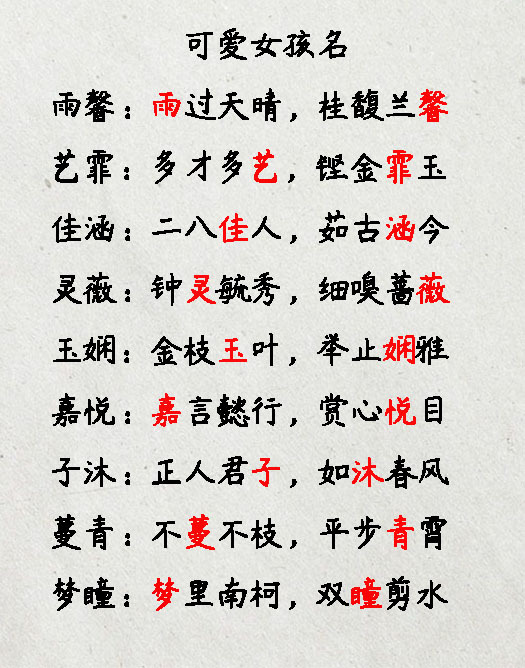 可爱女孩名
雨馨：雨过天晴，桂馥兰馨
艺霏：多才多艺，铿金霏玉
佳涵：二八佳人，茹古涵今
灵薇：钟灵毓秀，细嗅蔷薇
玉娴：金枝玉叶，举止娴雅
嘉悦：嘉言懿行，赏心悦目
子沐：正人君子，如沐春风
蔓青：不蔓不枝，平步青霄
梦瞳：梦里南柯，双瞳剪水